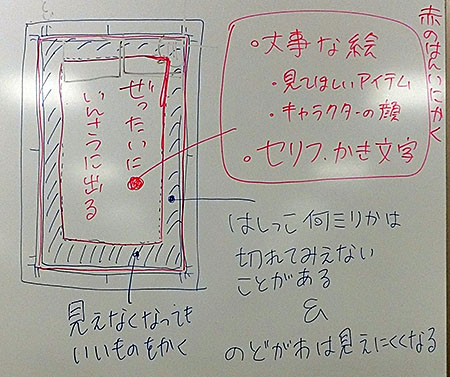 赤のはんいにかく
・大事な絵
・見てほしいアイテム
・キャラクターの顔
・セリフ、かき文字
ぜったいに
いんさつに出る
はしっこ何ミリかは
切れてみえない
ことがある
&
のどがわは見えにくくなる
見えなくなっても
いいものをかく